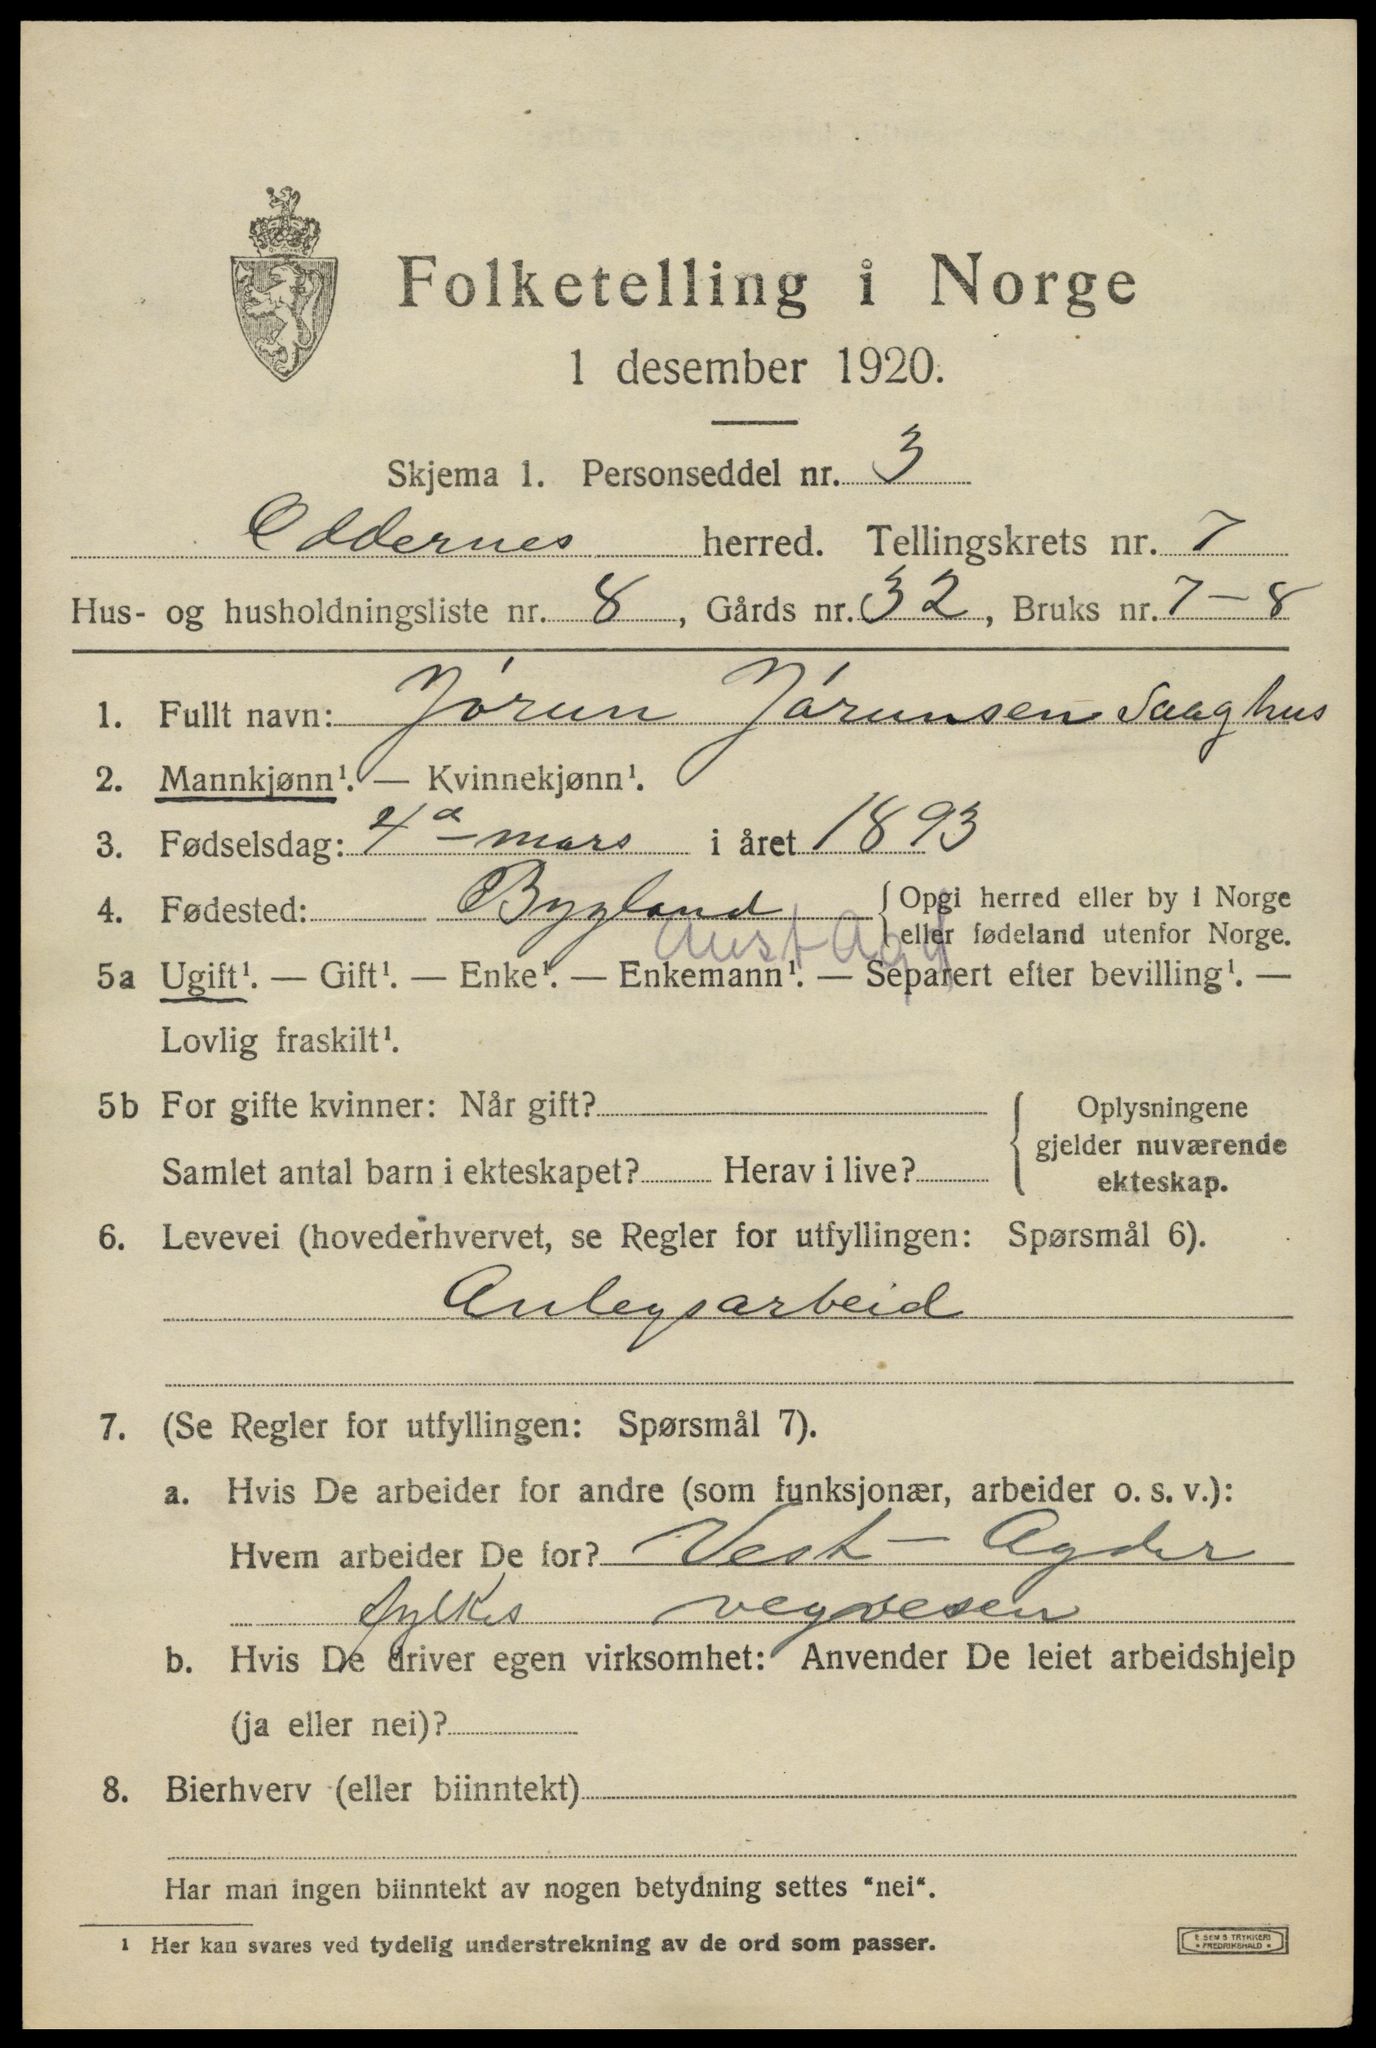 Folketelling i Norge
1 desember 1920.
Skjema 1. Personseddel nr. 3
Oddernes herred. Tellingskrets nr. 7
Hus- og husholdningsliste nr. 8, Gårds nr. 32, Bruks nr. 7-8
1. Fullt navn: Jørun Jørunsen Saaghus
2. Mannkjønn¹. — Kvinnekjønn¹.
3. Fødselsdag: 4de mars i året 1893
4. Fødested: Bygland { Opgi herred eller by i Norge
eller fødeland utenfor Norge.
Aust Agd
5a Ugift¹. — Gift¹. — Enke¹. — Enkemann¹. — Separert efter bevilling¹. —
Lovlig fraskilt¹.
5b For gifte kvinner: Når gift? { Oplysningene
gjelder nuværende
Samlet antal barn i ekteskapet? Herav i live? ekteskap.
6. Levevei (hovederhvervet, se Regler for utfyllingen: Spørsmål 6).
Anlegsarbeid
7. (Se Regler for utfyllingen: Spørsmål 7).
a. Hvis De arbeider for andre (som funksjonær, arbeider o. s. v.):
Hvem arbeider De for? Vest-Agder
fylkes vegvesen
b. Hvis De driver egen virksomhet: Anvender De leiet arbeidshjelp
(ja eller nei)?
8. Bierhverv (eller biinntekt)
Har man ingen biinntekt av nogen betydning settes "nei".
1 Her kan svares ved tydelig understrekning av de ord som passer.
E. SEM'S TRYKKERI
• FREDRIKSHALD •